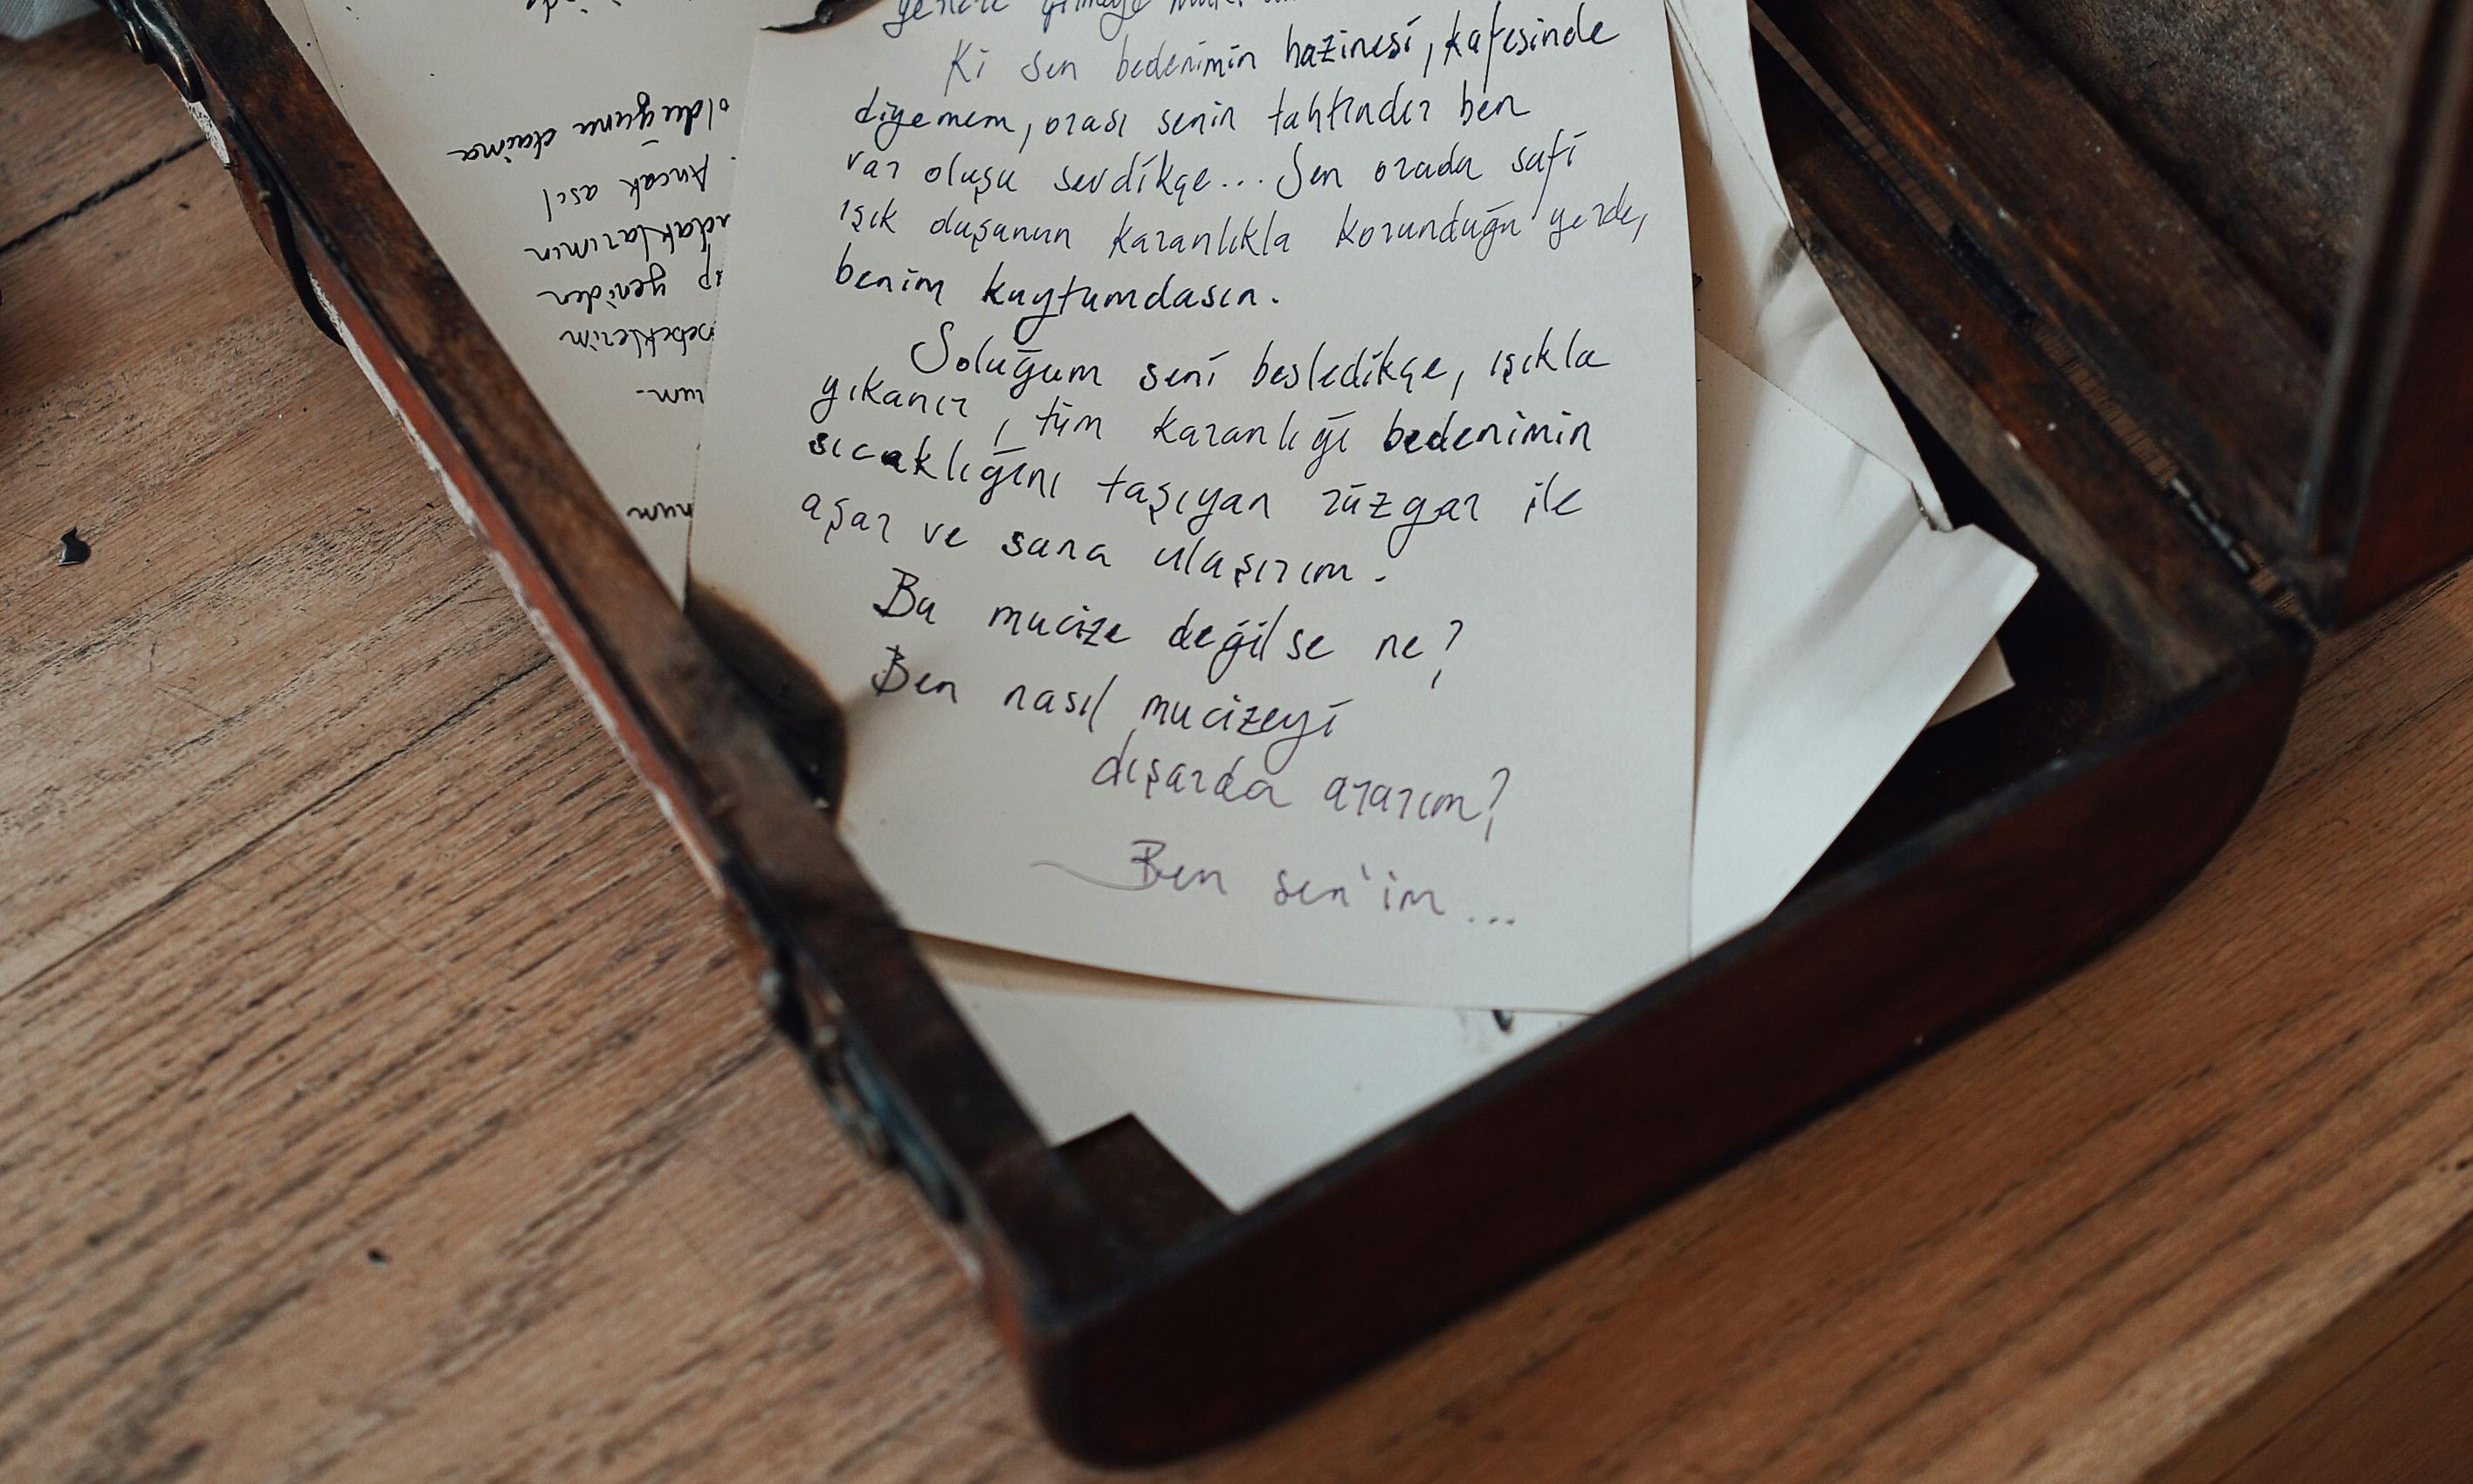 Ki sen bedenimin hazinesi, kafesinde
diyemem, orası senin tahtındır ben
var oluşu sevdikçe... Sen orada safi
ışık duşunun karanlıkla korunduğu yerde,
benim kuytumdasın.
Soluğum seni besledikçe, ışıkla
yıkanır, tüm karanlığı bedenimin
sıcaklığını taşıyan rüzgar ile
aşar ve sana ulaşırım.
Bu mucize değilse ne?
Ben nasıl mucizeyi
dışarda ararım?
Ben sen'im...
yeniden
Ancak asıl
olduğuna daima